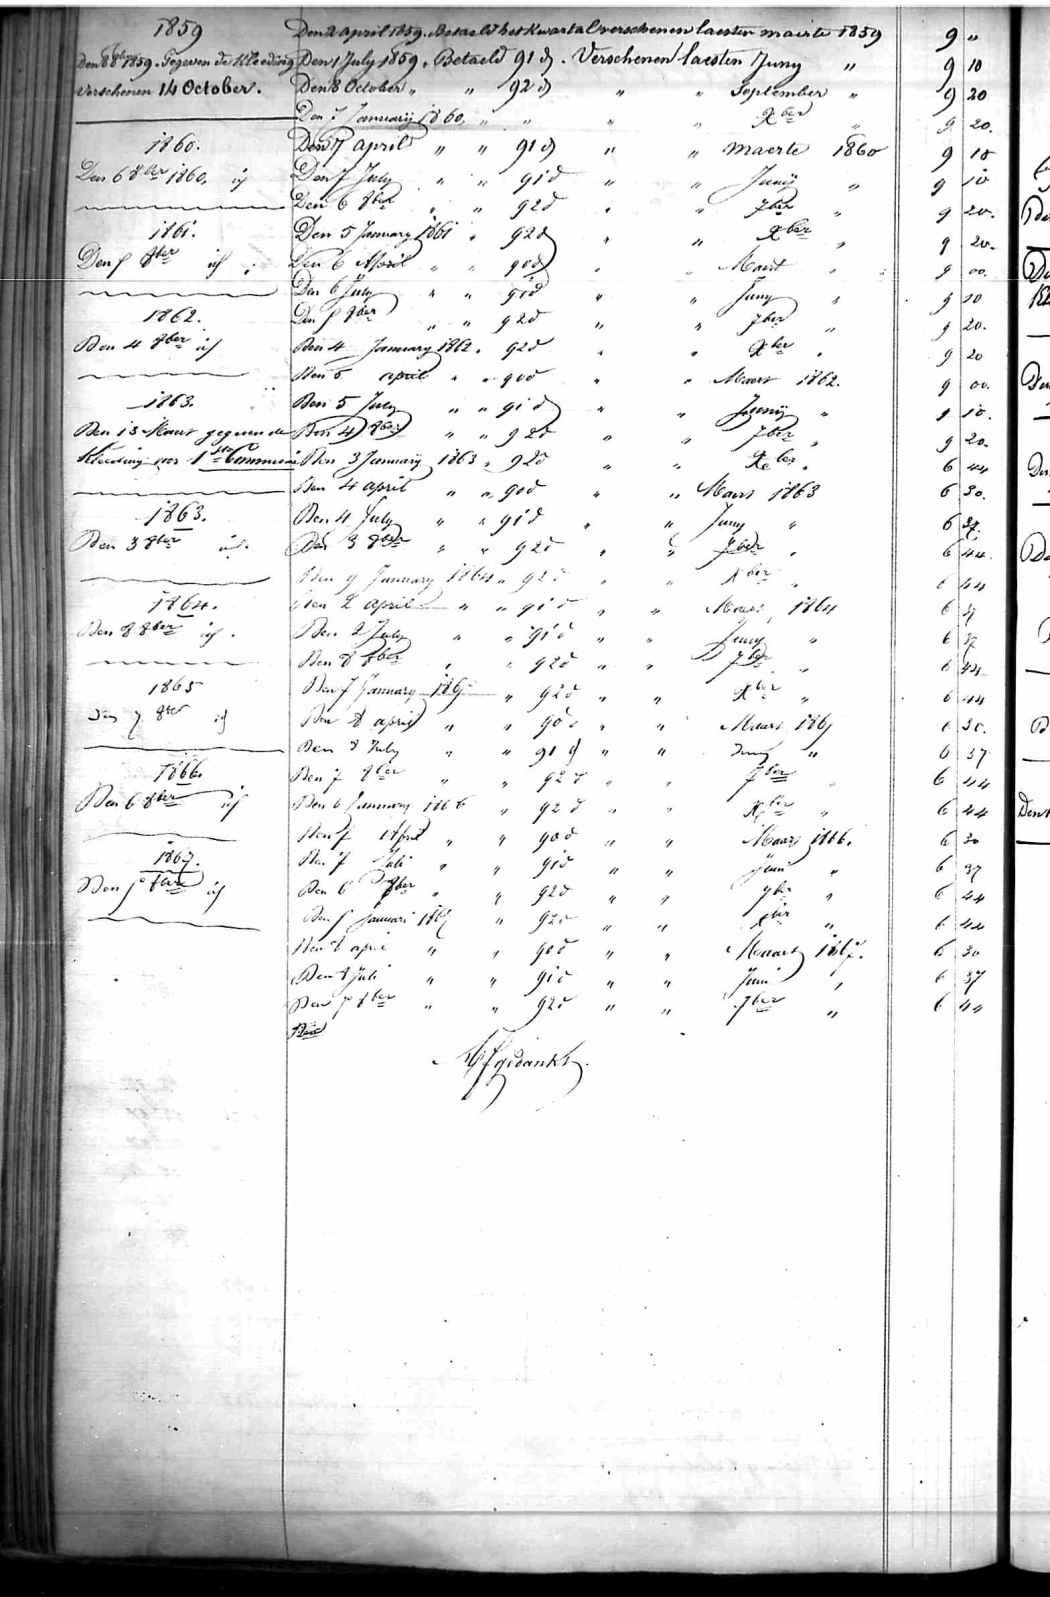 1859
Den 8 8ber 1859. Gegeven de Kleeding
Verschenen 14 October.
1860.
Den 6 8ber 1860. id
1861.
Den 5 8ber id
1862.
Den 4 8ber id
1863.
Den 13 Maart gegeven de
Kleeding voor 1ste Communie
1863.
Den 3 8ber id.
1864.
Den 8 8ber id.
1865
Den 7 8ber id
1866.
Den 6 8ber id
1867.
Den 5 8ber id
Den 2 april 1859. Betaeld het Kwartal verschenen laesten maerte 1859 9 "
Den 1 July 1859. Betaeld 91 d. Verschenen laesten Juny " 9 10
Den 8 October " " 92 d " " September " 9 20
Den 7 January 1860 " " " " Xber " 9 20.
Den 7 april " " 91 d " " maerte 1860 9 10
Den 7 July " " 91 d " " Junij " 9 10
Den 6 8ber " " 92 d " " 7ber " 9 20.
Den 5 January 1861 " 92 d " " Xber " 9 20.
Den 6 April " " 90 d " " Maart " 9 00.
Den 6 July " " 91 d " " Juny " 9 10
Den 5 8ber " " 92 d " " 7ber " 9 20.
Den 4 January 1862. 92 d " " Xber " 9 20
Den 5 april " " 90 d " " Maart 1862. 9 00.
Den 5 July " " 91 d " " Junij " 9 10.
Den 4 8ber " " 92 d " " 7ber " 9 20.
Den 3 January 1863 " 92 d " " Xber " 6 44
Den 4 april " " 90 d " Maart 1863 6 30.
Den 4 July " " 91 d " " Juny " 6 37.
Den 3 8ber " " 92 d " " 7ber " 6 44.
Den 9 January 1864 " 92 d " " Xber " 6 44
Den 2 april " " 91 d " " Maart 1864 6 37
Den 2 July " " 91 d " " Juny " 6 37
Den 8 8ber " " 92 d " " 7ber " 6 44
Den 7 January 1865 " 92 d " " Xber " 6 44
Den 8 april " " 90 d " " Maart 1865 6 30.
Den 8 July " " 91 d " " Juny " 6 37
Den 7 8ber " " 92 d " " 7ber " 6 44
Den 6 January 1866 " 92 d " " Xber " 6 44
Den 7 April " " 90 d " " Maart 1866. 6 30
Den 7 Juli " " 91 d " " Juni " 6 37
Den 6 8ber " " 92 d " " 7ber " 6 44
Den 5 Januari 1867 " 92 d " " Xber " 6 44
Den 6 april " " 90 d " " Maart 1867. 6 30
Den 6 Juli " " 91 d " " Juni " 6 37
Den 5 8ber " " 92 d " " 7ber " 6 44
Den
Afgedankt.